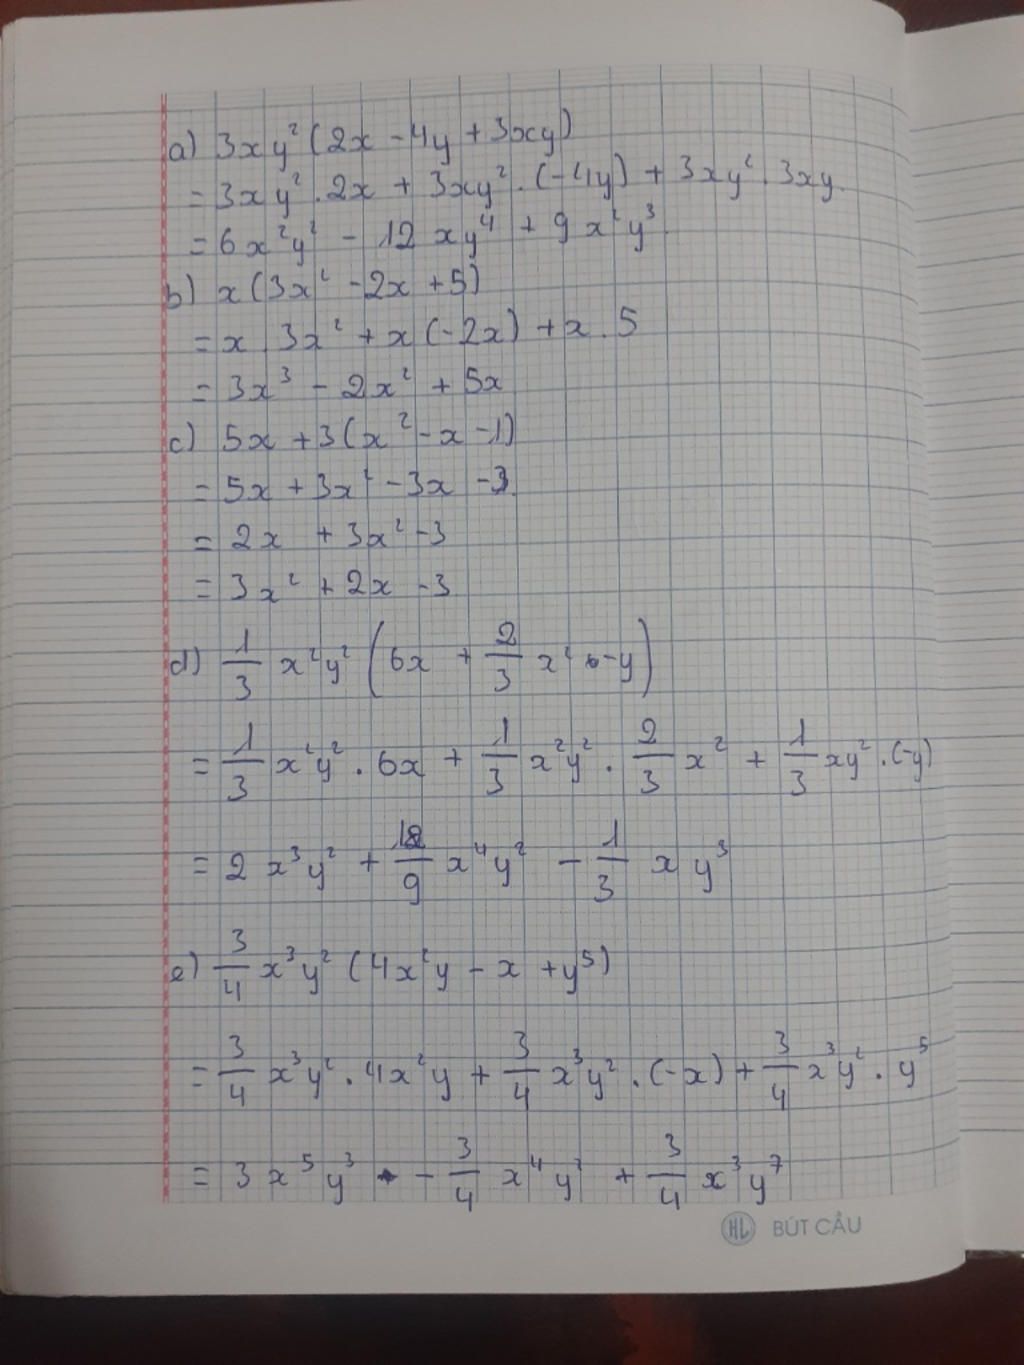 a) 3xy²(2x - 4y + 3xy)
= 3xy² . 2x + 3xy² . (-4y) + 3xy² . 3xy
= 6x²y² - 12xy⁴ + 9x²y³
b) x(3x² - 2x + 5)
= x . 3x² + x(-2x) + x . 5
= 3x³ - 2x² + 5x
c) 5x + 3(x² - x - 1)
= 5x + 3x² - 3x - 3
= 2x + 3x² - 3
= 3x² + 2x - 3
d) 1/3 x²y² (6x + 2/3 x² - y)
= 1/3 x²y² . 6x + 1/3 x²y² . 2/3 x² + 1/3 xy² . (-y)
= 2x³y² + 2/9 x⁴y² - 1/3 xy³
e) 3/4 x³y² (4x²y - x + y⁵)
= 3/4 x³y² . 4x²y + 3/4 x³y² . (-x) + 3/4 x³y² . y⁵
= 3x⁵y³ - 3/4 x⁴y² + 3/4 x³y⁷
HL BÚT CẦU